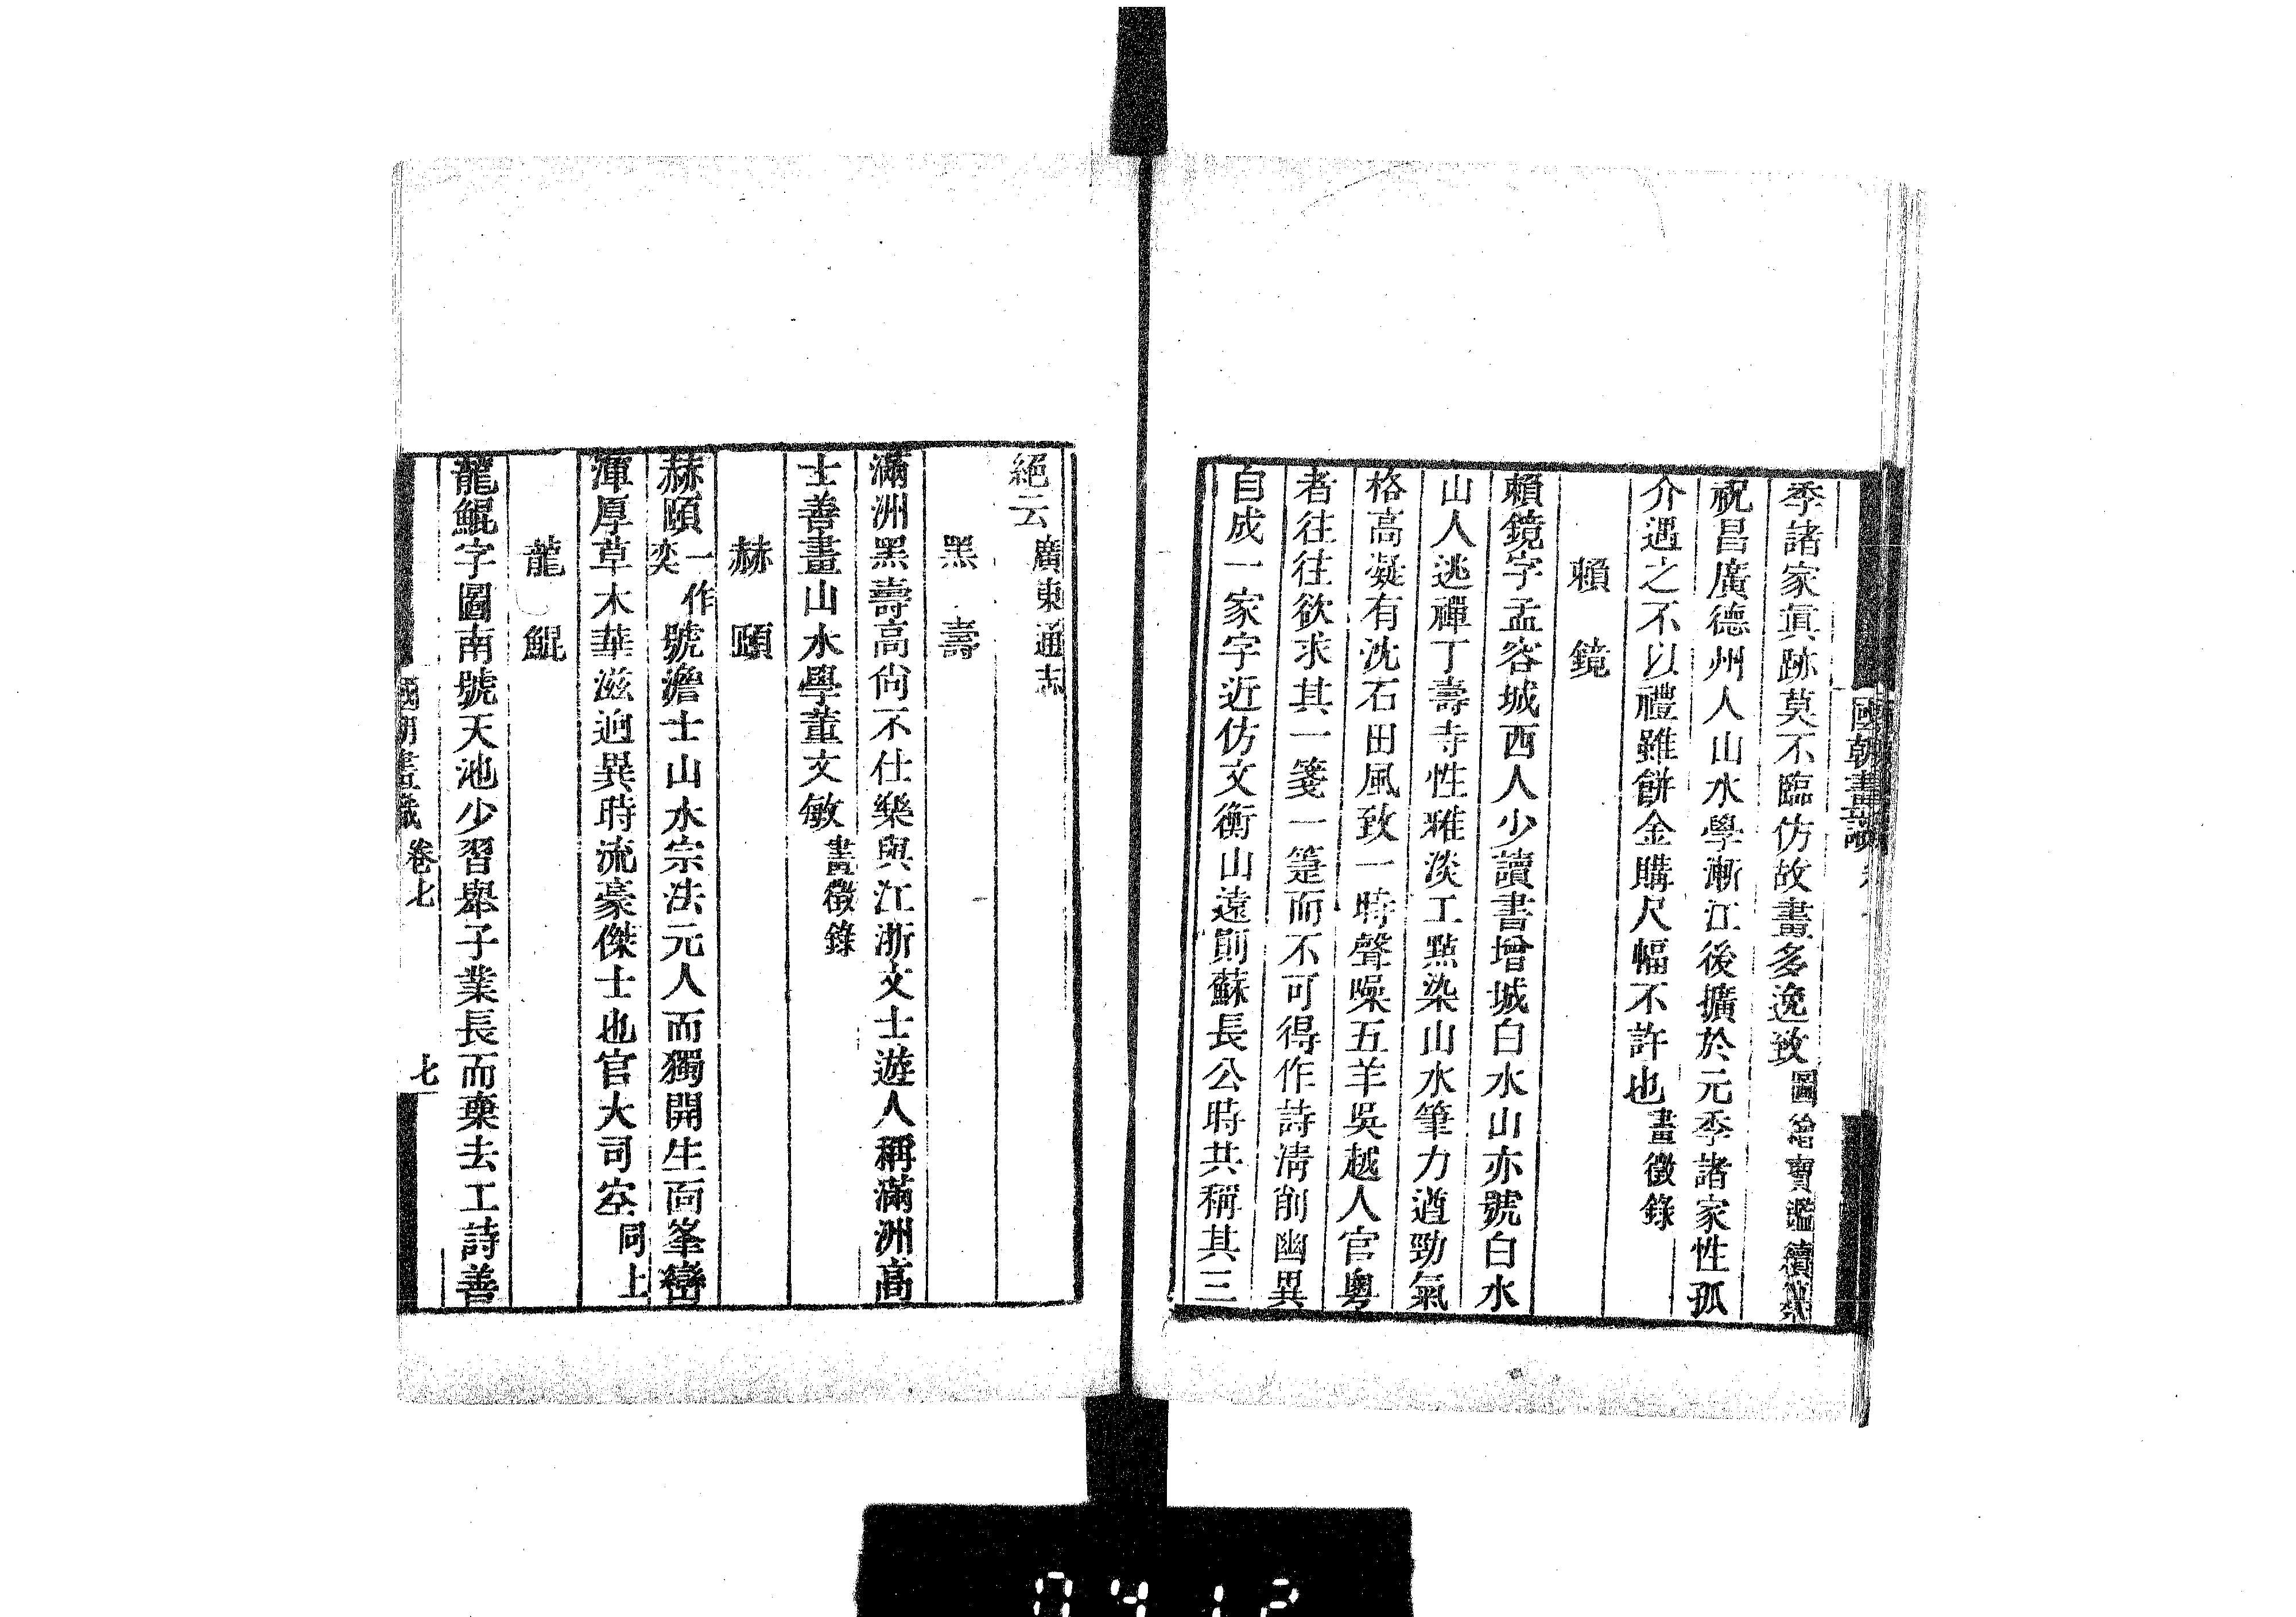 國朝畫識
季諸家眞跡莫不臨仿故畫多逸致圖繪寶鑑續纂
祝昌廣德州人山水學漸江後擴於元季諸家性孤
介遇之不以禮雖餅金購尺幅不許也畫徵錄
賴鏡
賴鏡字孟容城西人少讀書增城白水山亦號白水
山人逃禪丁壽寺性雅淡工點染山水筆力遒勁氣
格高凝有沈石田風致一時聲噪五羊吳越人官粵
者往往欲求其一箋一箑而不可得作詩清削幽異
自成一家字近仿文衡山遠則蘇長公時共稱其三
絕云廣東通志
黑壽
滿洲黑壽高尙不仕樂與江浙文士遊人稱滿洲高
士善畫山水學董文敏畫徵錄
赫頤
赫頤一作奕號澹士山水宗法元人而獨開生面峯巒
渾厚草木華滋迥異時流豪傑士也官大司空同上
龍鯤
龍鯤字圖南號天池少習舉子業長而棄去工詩善
國朝畫識 卷七 七
0412